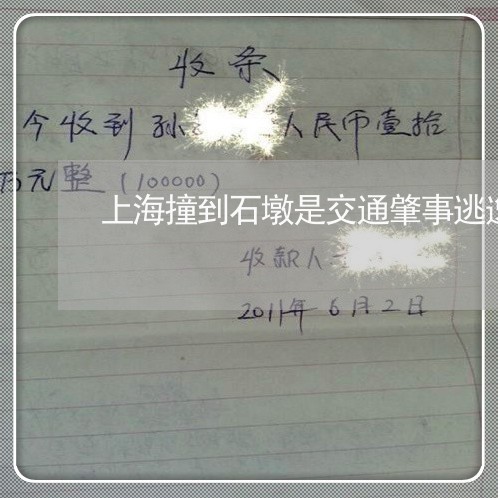 收条
今收到孙 人民币壹拾
万元整（100000）
上海撞到石墩是交通肇事逃逸
收款人
2011年6月2日